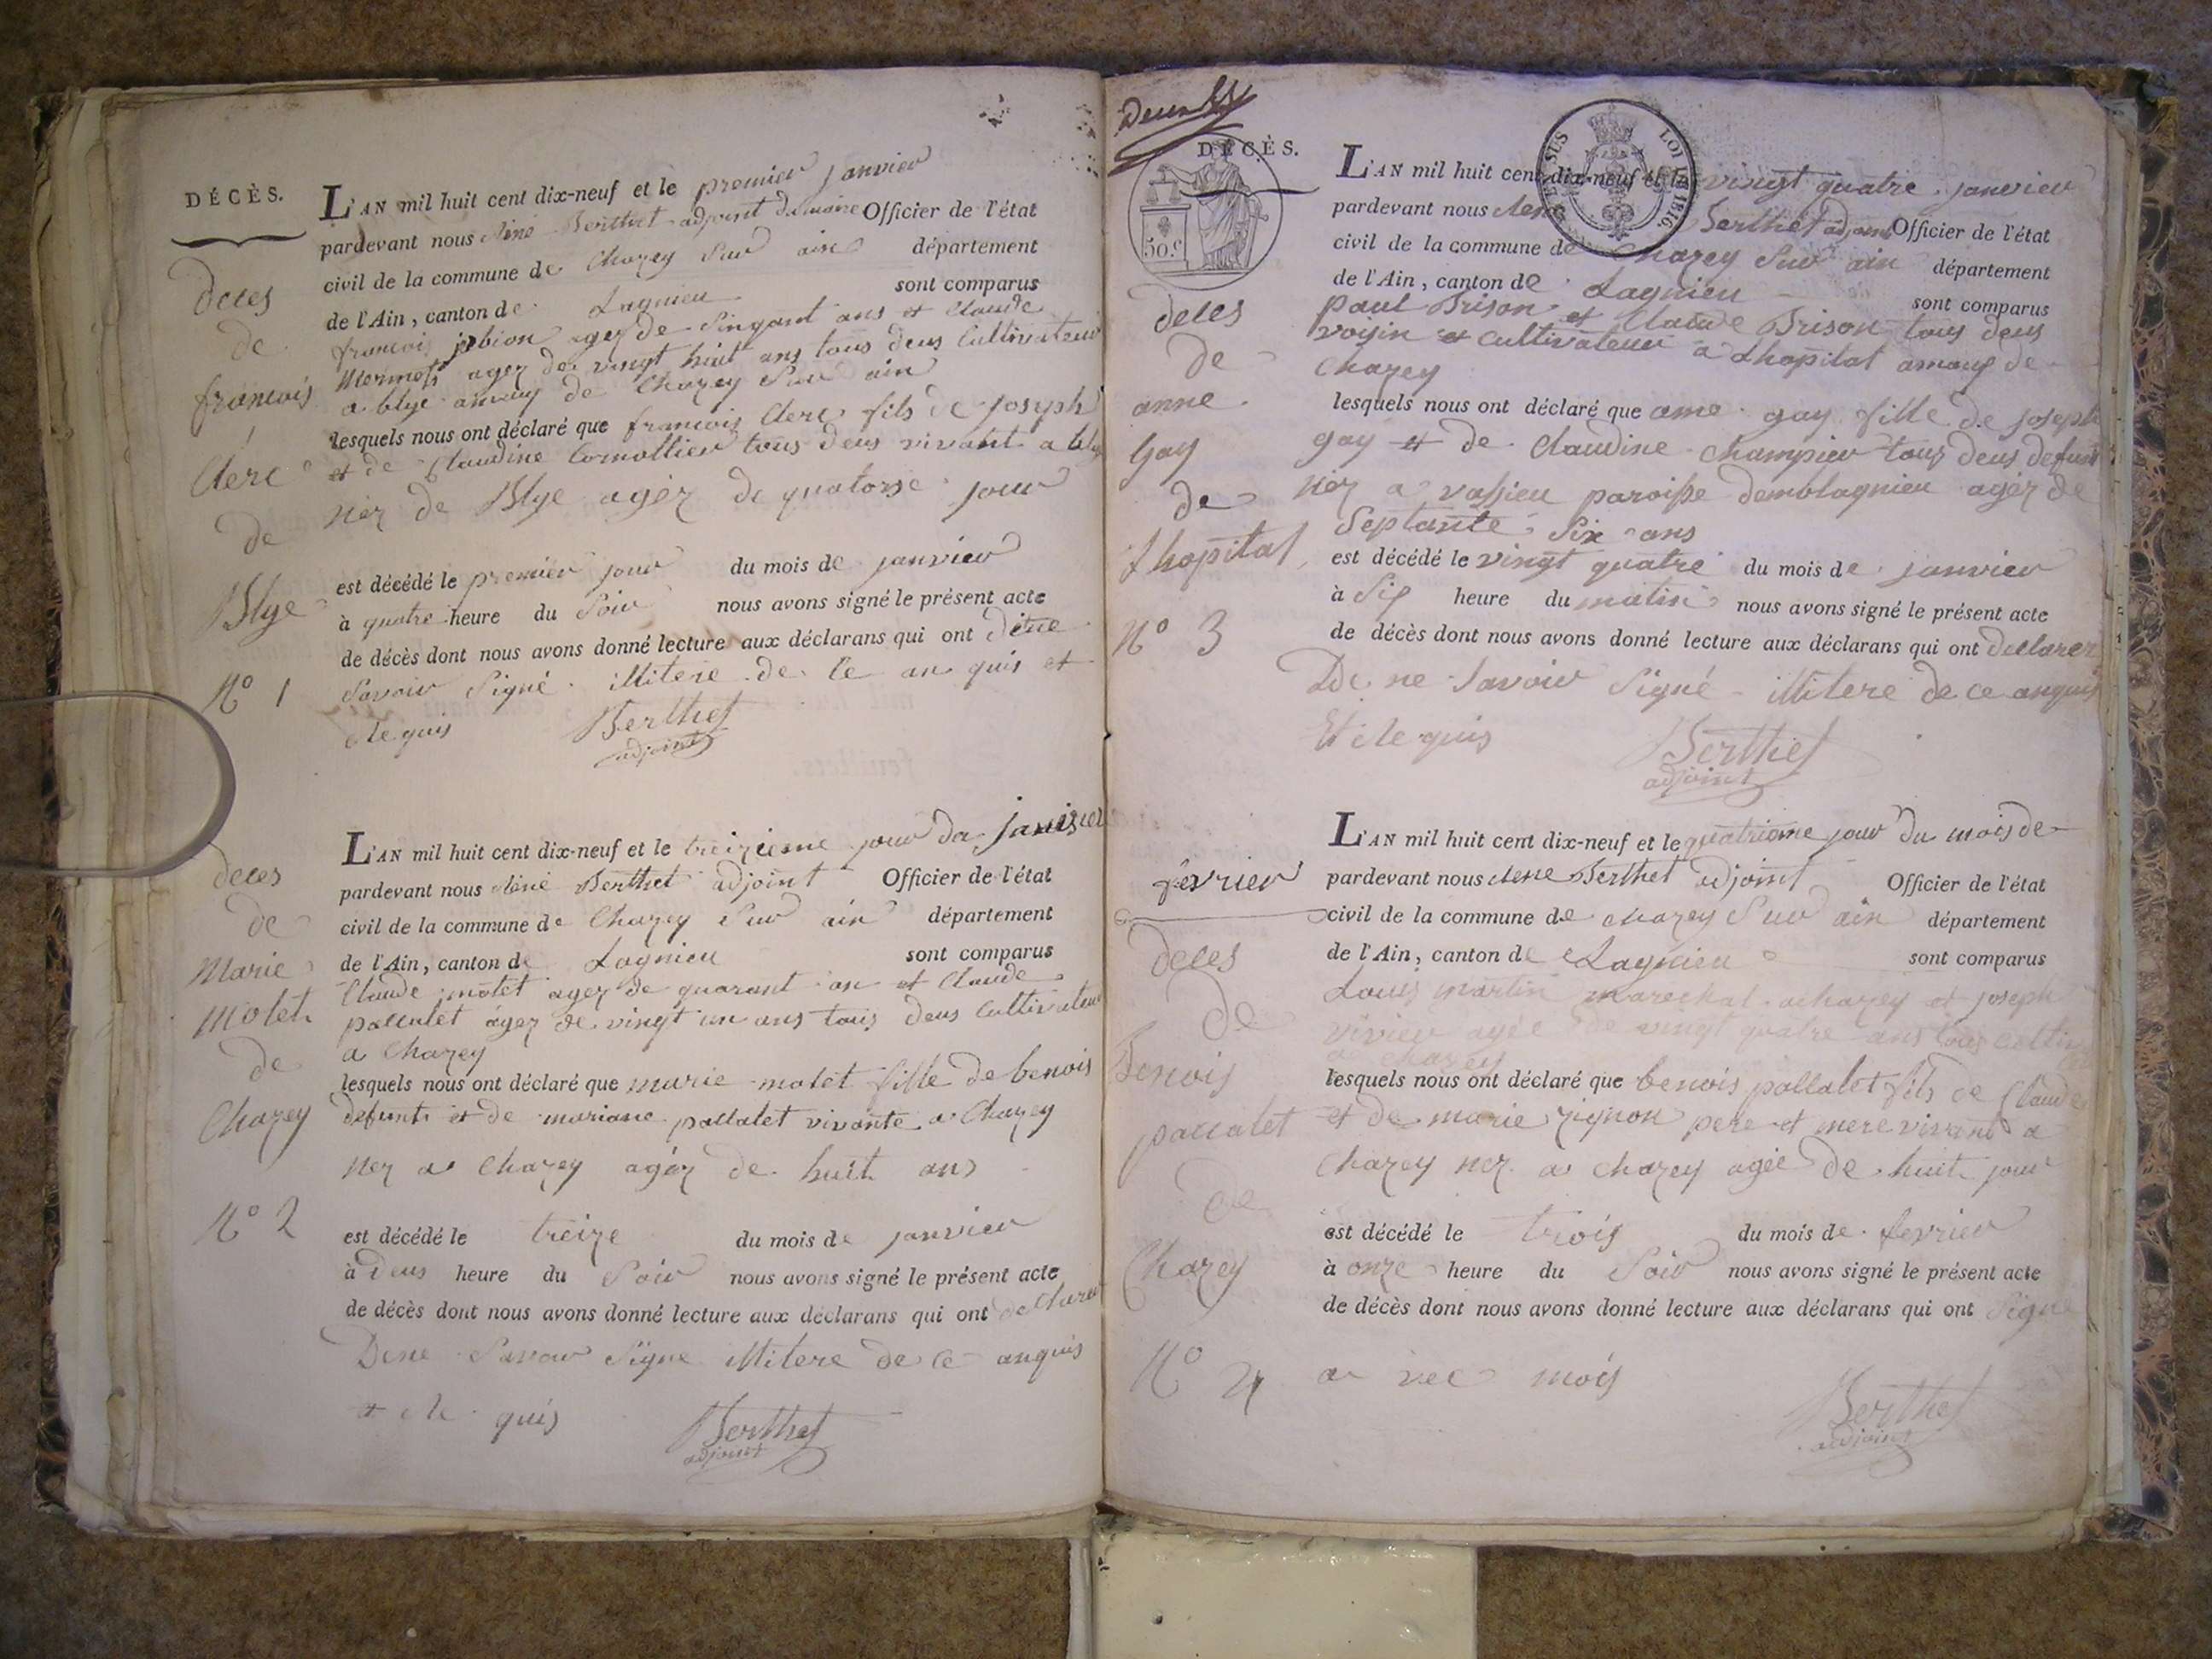 DÉCÈS.
L'AN mil huit cent dix-neuf et le premier janvier
pardevant nous Berthet adjoint du maire Officier de l'état
civil de la commune de Chazey Sur ain département
de l'Ain, canton de Lagnieu sont comparus
francois jobion agez de Singant ans et Claude
Mermet agez de vingt huit ans tous deus Cultivateur
a blye de Chazey Sur ain
lesquels nous ont déclaré que francois Clerc fils de joseph
et de Claudine Cornottier tous deus vivant a blye
nez de Blye agéz de quatorse jour
est décédé le premier jour du mois de janvier
à quatre heure du Soir nous avons signé le présent acte
de décès dont nous avons donné lecture aux déclarans qui ont dene
Savoir Signé de Ce an quis et
quis
Berthet
adjoint
deces
de
francois
Clerc
de
Blye
N° 1
L'AN mil huit cent dix-neuf et le treizieme jour da janvier
pardevant nous Berthet adjoint Officier de l'état
civil de la commune de Chazey Sur ain département
de l'Ain, canton de Lagnieu sont comparus
Claude motet agez de quarant an et Claude
pallatet agez de vingt un ans tous deus Cultivateur
a Chazey
lesquels nous ont déclaré que marie motet fille de benois
defunt et de mariane pallatet vivante a Chazey
nez a Chazey agéz de huit ans
est décédé le treize du mois de janvier
à Deus heure du Soir nous avons signé le présent acte
de décès dont nous avons donné lecture aux déclarans qui ont declarer
Dene Savoir Signe de Ce anquis
et quis
Berthet
adjoint
deces
de
Marie
Motet
de
Chazey
N° 2
DÉCÈS.
50 c.
LOI DE 1816
L'AN mil huit cent dix-neuf et le vingt quatre janvier
pardevant nous Berthet adjoint Officier de l'état
civil de la commune de Chazey Sur ain département
de l'Ain, canton de Lagnieu sont comparus
paul Brison et Claude Brison tous deus
voisin et Cultivateur a Lhopital de
Chazey
lesquels nous ont déclaré que anne gay fille de joseph
gay et de Claudine Champier tous deus defunt
nez a vassieu paroisse agez de
Septante Six ans
est décédé le vingt quatre du mois de janvier
à Sis heure du matin nous avons signé le présent acte
de décès dont nous avons donné lecture aux déclarans qui ont declarer
De ne Savoir Signé de ce anquis
Et quis
Berthet
adjoint
deces
de
anne
Gay
de
Lhopital
N° 3
L'AN mil huit cent dix-neuf et le quatrieme jour Du mois de
février
pardevant nous Berthet adjoint Officier de l'état
civil de la commune de Chazey Sur ain département
de l'Ain, canton de Lagnieu sont comparus
Louis martin marechal achazey et joseph
vivier agée de vingt quatre ans
a Chazey
lesquels nous ont déclaré que benois pallatet fils de Claude
et de marie pignon pere et mere vivant a
Chazey nez a Chazey agée de huit jour
est décédé le trois du mois de fevrier
à onze heure du Soir nous avons signé le présent acte
de décès dont nous avons donné lecture aux déclarans qui ont Signe
a vec mois
Berthet
adjoint
deces
De
Benois
pallatet
de
Chazey
N° 4